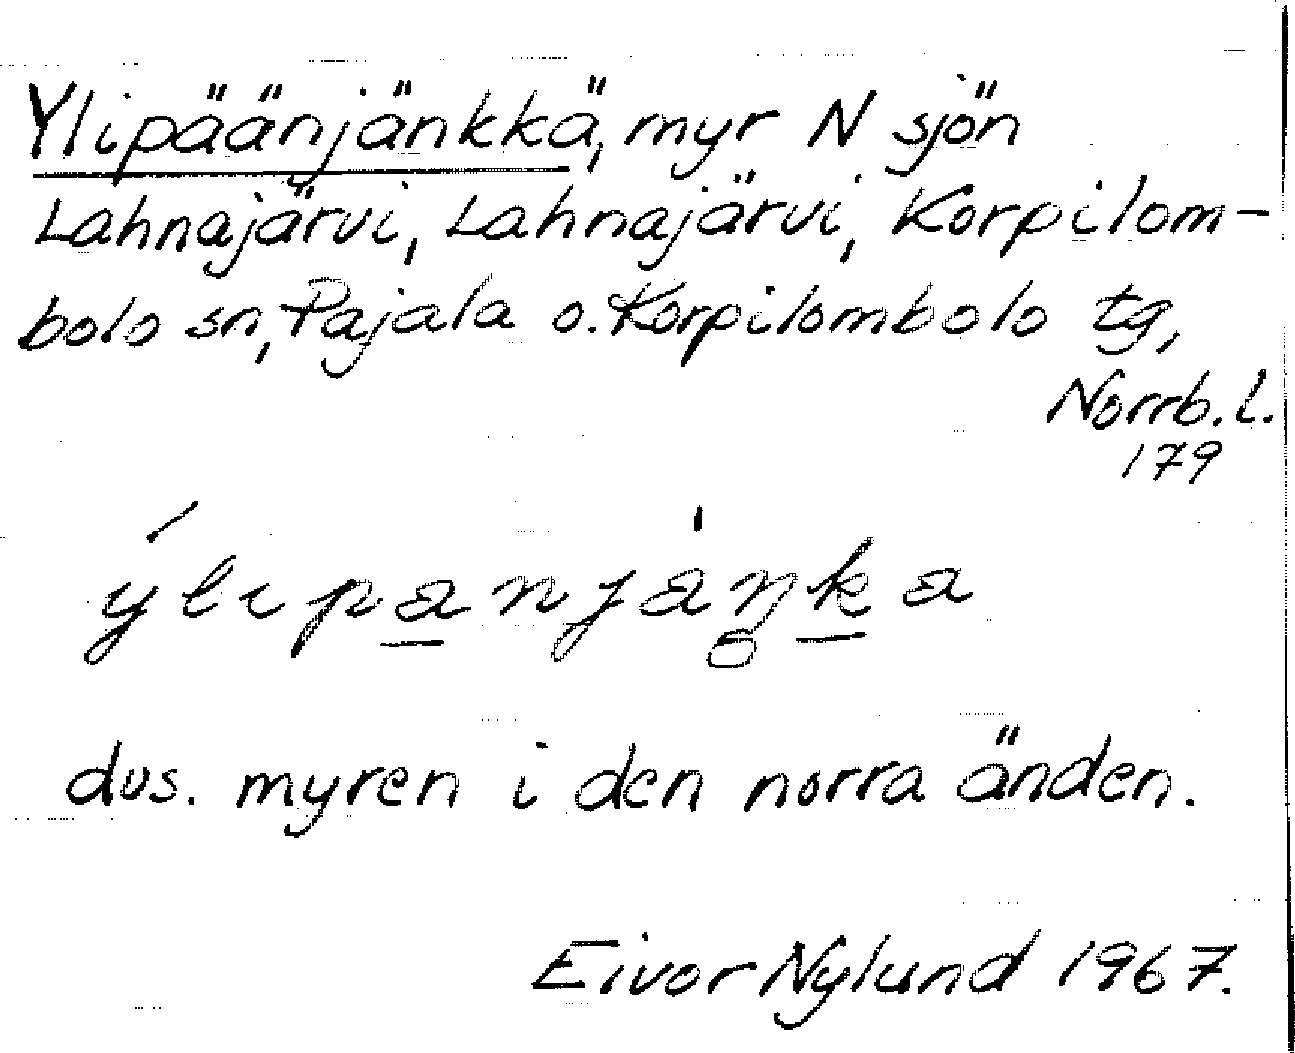 Ylipäänjänkkä, myr N sjön
Lahnajärvi, Lahnajärvi, Korpilom-
bolo sn, Pajala o. Korpilombolo tg,
Norrb. l.
179
dvs. myren i den norra änden.
Eivor Nylund 1967.